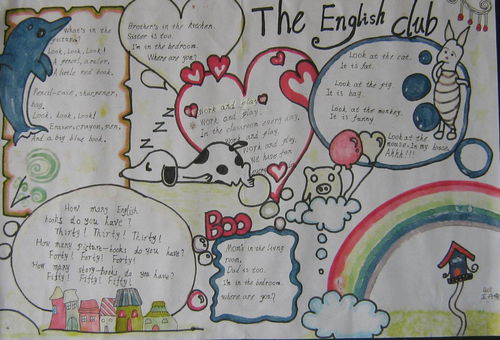 The English club
What's in the
picture?
Look, Look, Look!
A pencil, a ruler,
A little red book.
Pencil-case, sharpener,
bag.
Look, Look, Look!
Eraser, crayon, pen,
And a big blue book.
Brother's in the kitchen.
Sister is too.
I'm in the bedroom.
Where are you?
Work and play,
Work and play.
In the classroom every day.
Work and play,
Work and play,
We have fun
every
Look at the cat.
It is fat.
Look at the pig.
It is big.
Look at the monkey.
It is funny
Look at the
mouse. In my house.
Ahhh!!!
ZZZZ
How many English
books do you have?
Thirty! Thirty! Thirty!
How many picture-books do you have?
Forty! Forty! Forty!
How many story-books do you have?
Fifty! Fifty! Fifty!
Boo
Mom's in the living
room,
Dad is too.
I'm in the bedroom.
where are you?